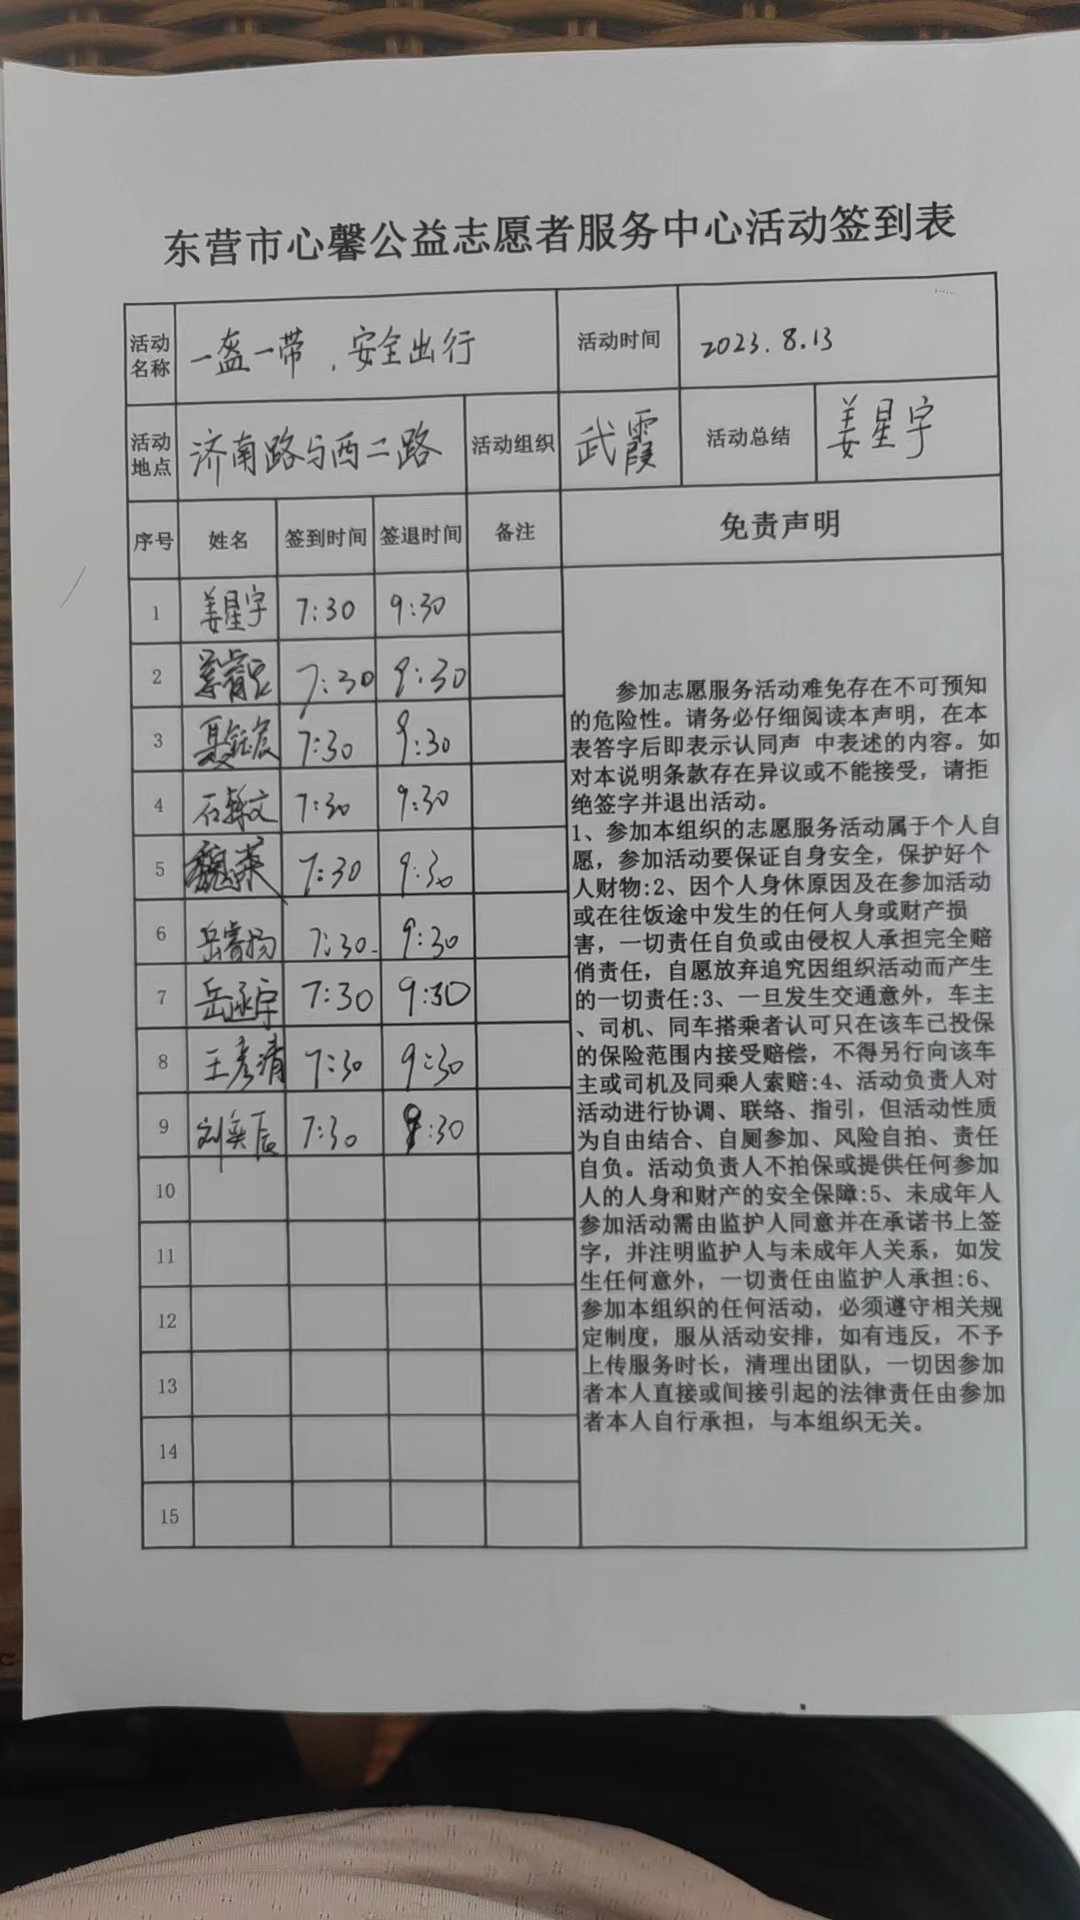 东营市心馨公益志愿者服务中心活动签到表
活动名称 一盔一带，安全出行 活动时间 2023.8.13
活动地点 济南路与西二路 活动组织 武霞 活动总结 姜星宇
序号 姓名 签到时间 签退时间 备注 免责声明
1 姜星宇 7:30 9:30
2 7:30 9:30
3 7:30 9:30
4 7:30 9:30
5 7:30 9:30
6 7:30 9:30
7 7:30 9:30
8 王彦清 7:30 9:30
9 刘奕辰 7:30 9:30
10
11
12
13
14
15
参加志愿服务活动难免存在不可预知
的危险性。请务必仔细阅读本声明，在本
表答字后即表示认同声 中表述的内容。如
对本说明条款存在异议或不能接受，请拒
绝签字并退出活动。
1、参加本组织的志愿服务活动属于个人自
愿，参加活动要保证自身安全，保护好个
人财物:2、因个人身休原因及在参加活动
或在往饭途中发生的任何人身或财产损
害，一切责任自负或由侵权人承担完全赔
俏责任，自愿放弃追究因组织活动而产生
的一切责任:3、一旦发生交通意外，车主
、司机、同车搭乘者认可只在该车已投保
的保险范围内接受赔偿，不得另行向该车
主或司机及同乘人索赔:4、活动负责人对
活动进行协调、联络、指引，但活动性质
为自由结合、自厕参加、风险自拍、责任
自负。活动负责人不拍保或提供任何参加
人的人身和财产的安全保障:5、未成年人
参加活动需由监护人同意并在承诺书上签
字，并注明监护人与未成年人关系，如发
生任何意外，一切责任由监护人承担:6、
参加本组织的任何活动，必须遵守相关规
定制度，服从活动安排，如有违反，不予
上传服务时长，清理出团队，一切因参加
者本人直接或间接引起的法律责任由参加
者本人自行承担，与本组织无关。